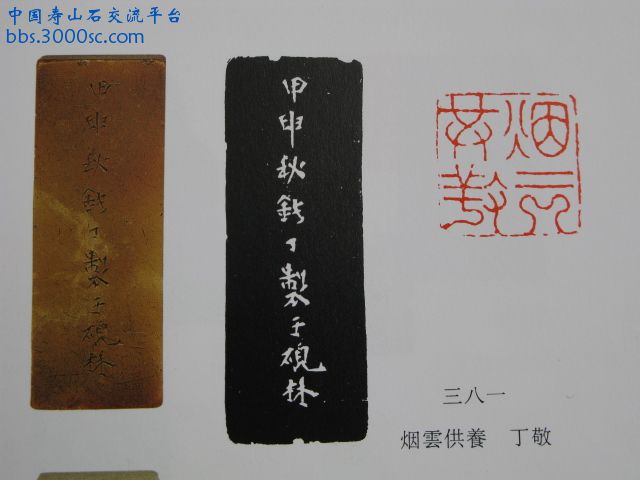 中国寿山石交流平台
bbs.3000sc.com
甲申秋鈍丁製于硯林
甲申秋鈍丁製于硯林
烟云
供養
三八一
烟雲供養 丁敬